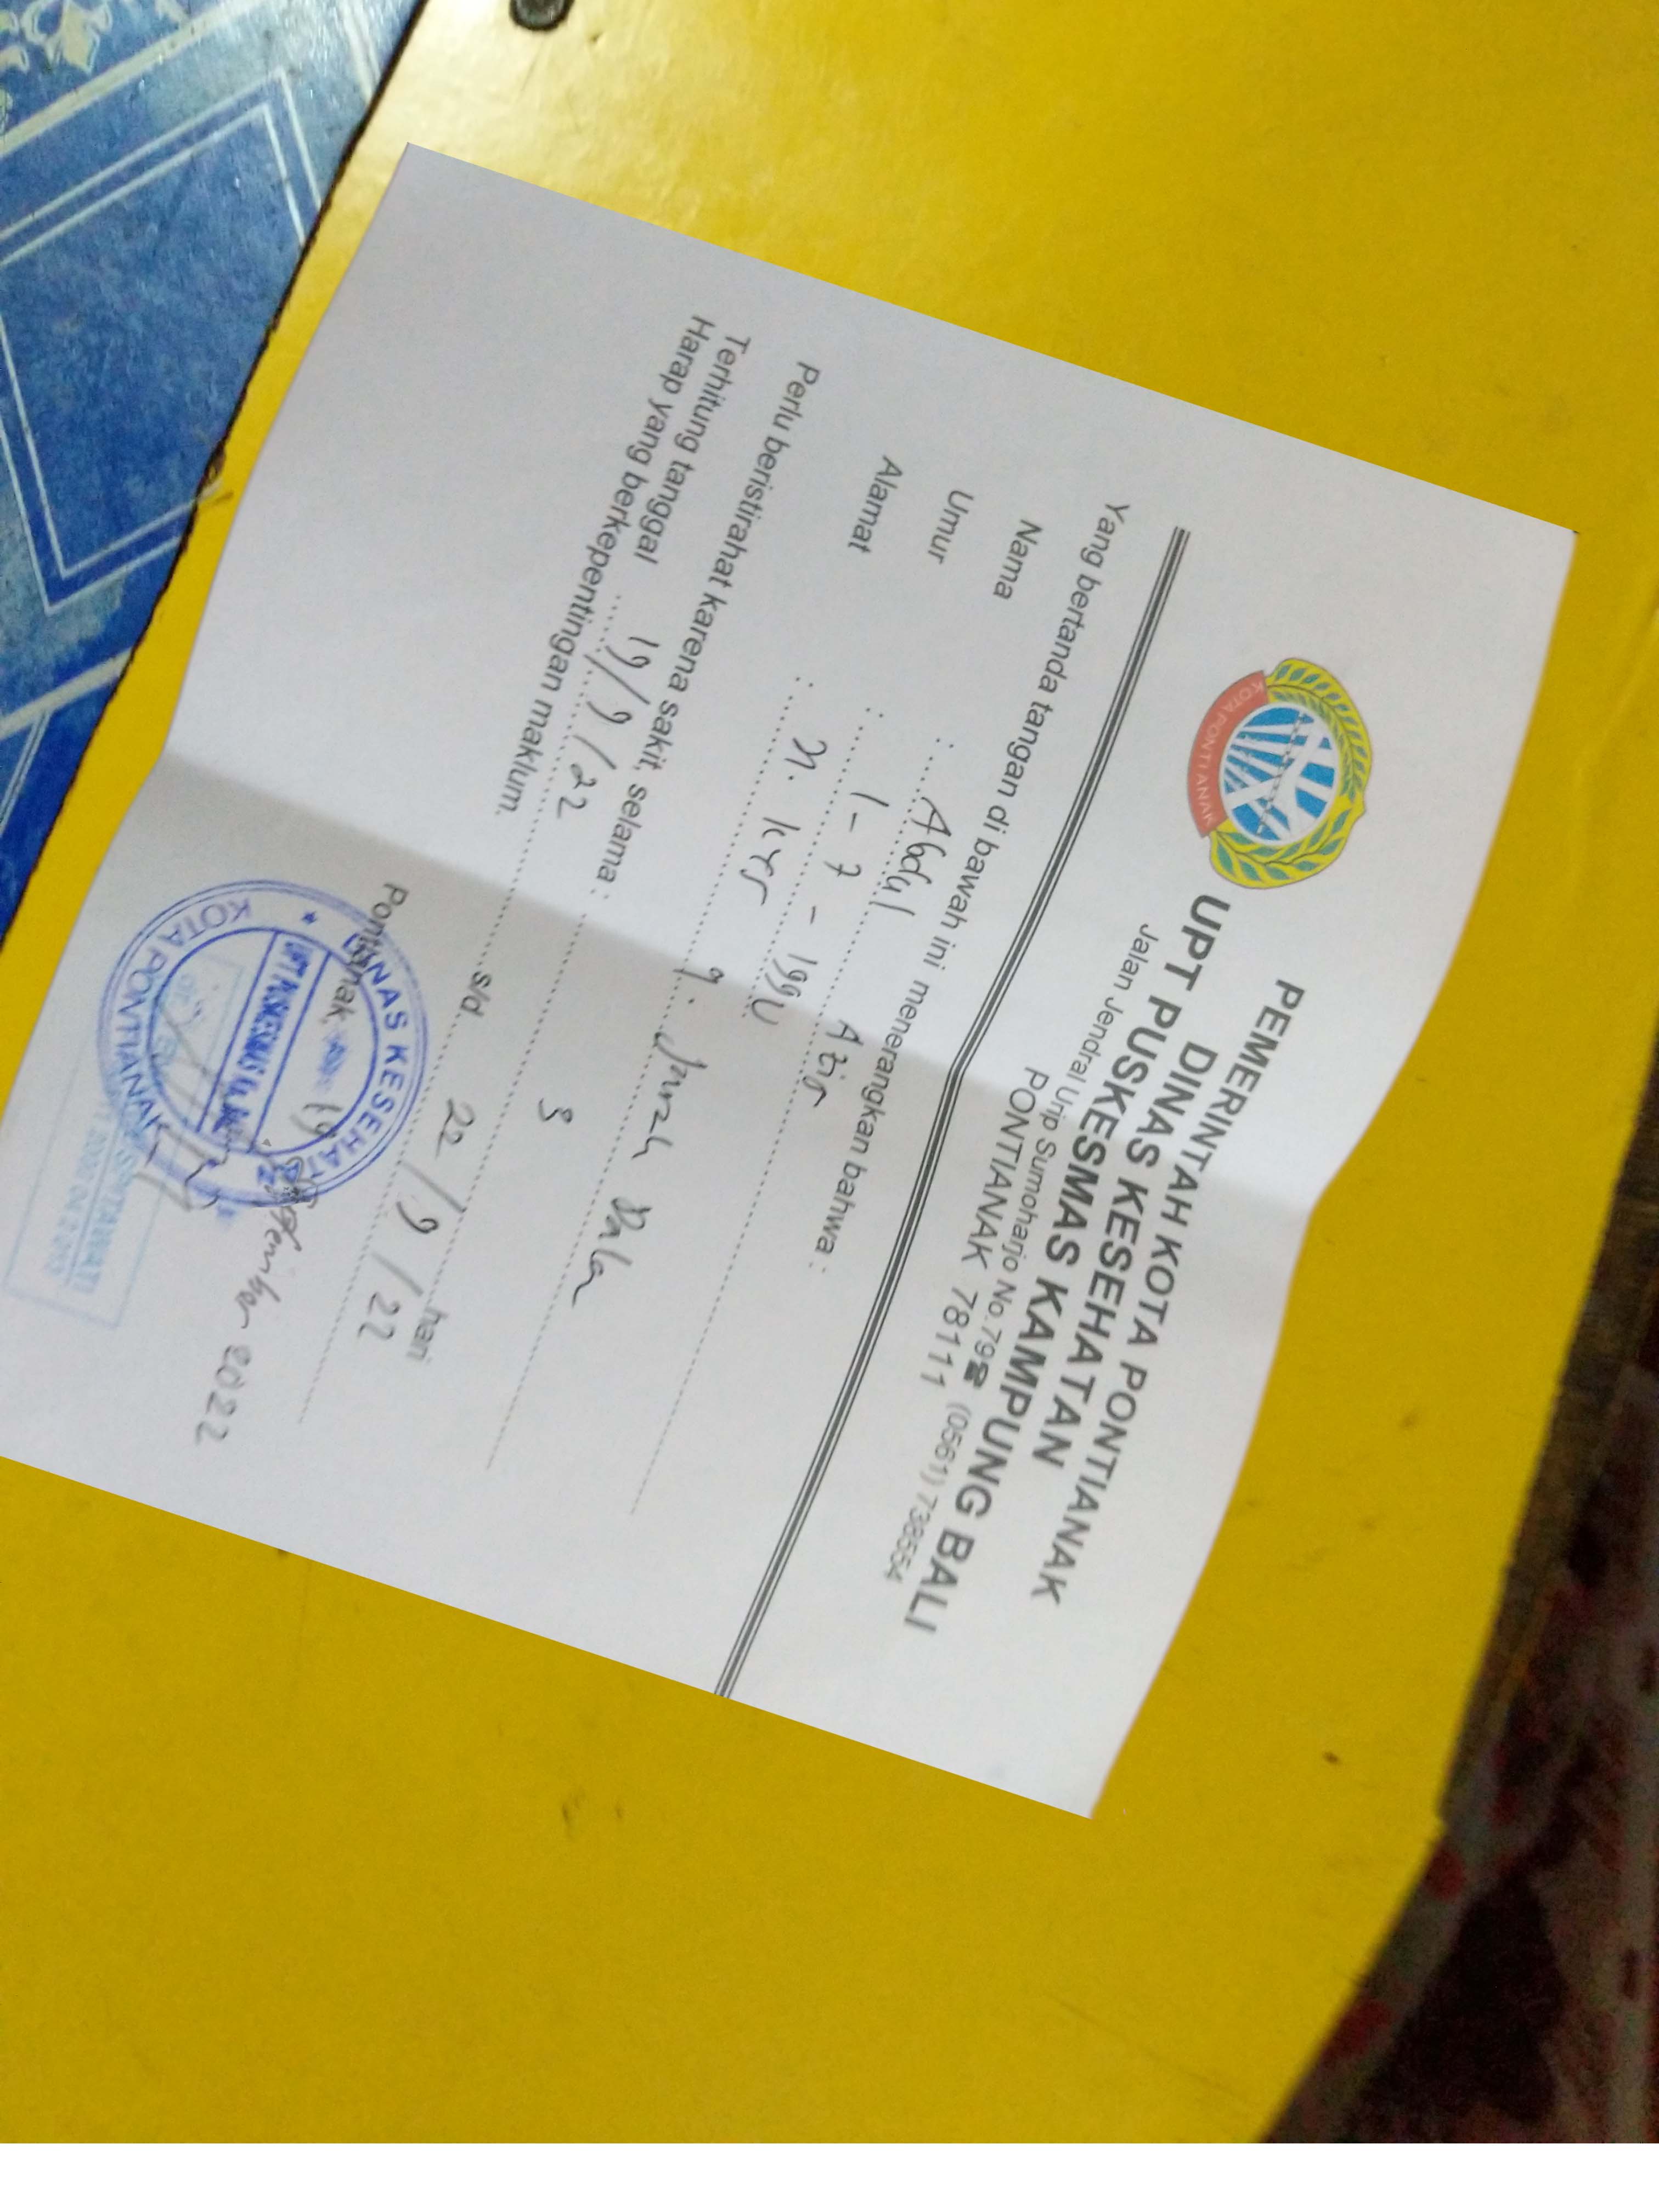 KOTA PONTIANAK
PEMERINTAH KOTA PONTIANAK
DINAS KESEHATAN
UPT PUSKESMAS KAMPUNG BALI
Jalan Jendral Urip Sumoharjo No.79☎ (0561) 738554
PONTIANAK 78111
Yang bertanda tangan di bawah ini menerangkan bahwa :
Nama : Abdul Azis
Umur : 1 - 7 - 199
Alamat :
Perlu beristirahat karena sakit, selama : 3 hari
Terhitung tanggal 19/9/22 s/d 22/9/22
Harap yang berkepentingan maklum.
Pontianak, 19 September 2022
DINAS KESEHATAN
UPT PUSKESMAS Kp. BALI
KOTA PONTIANAK